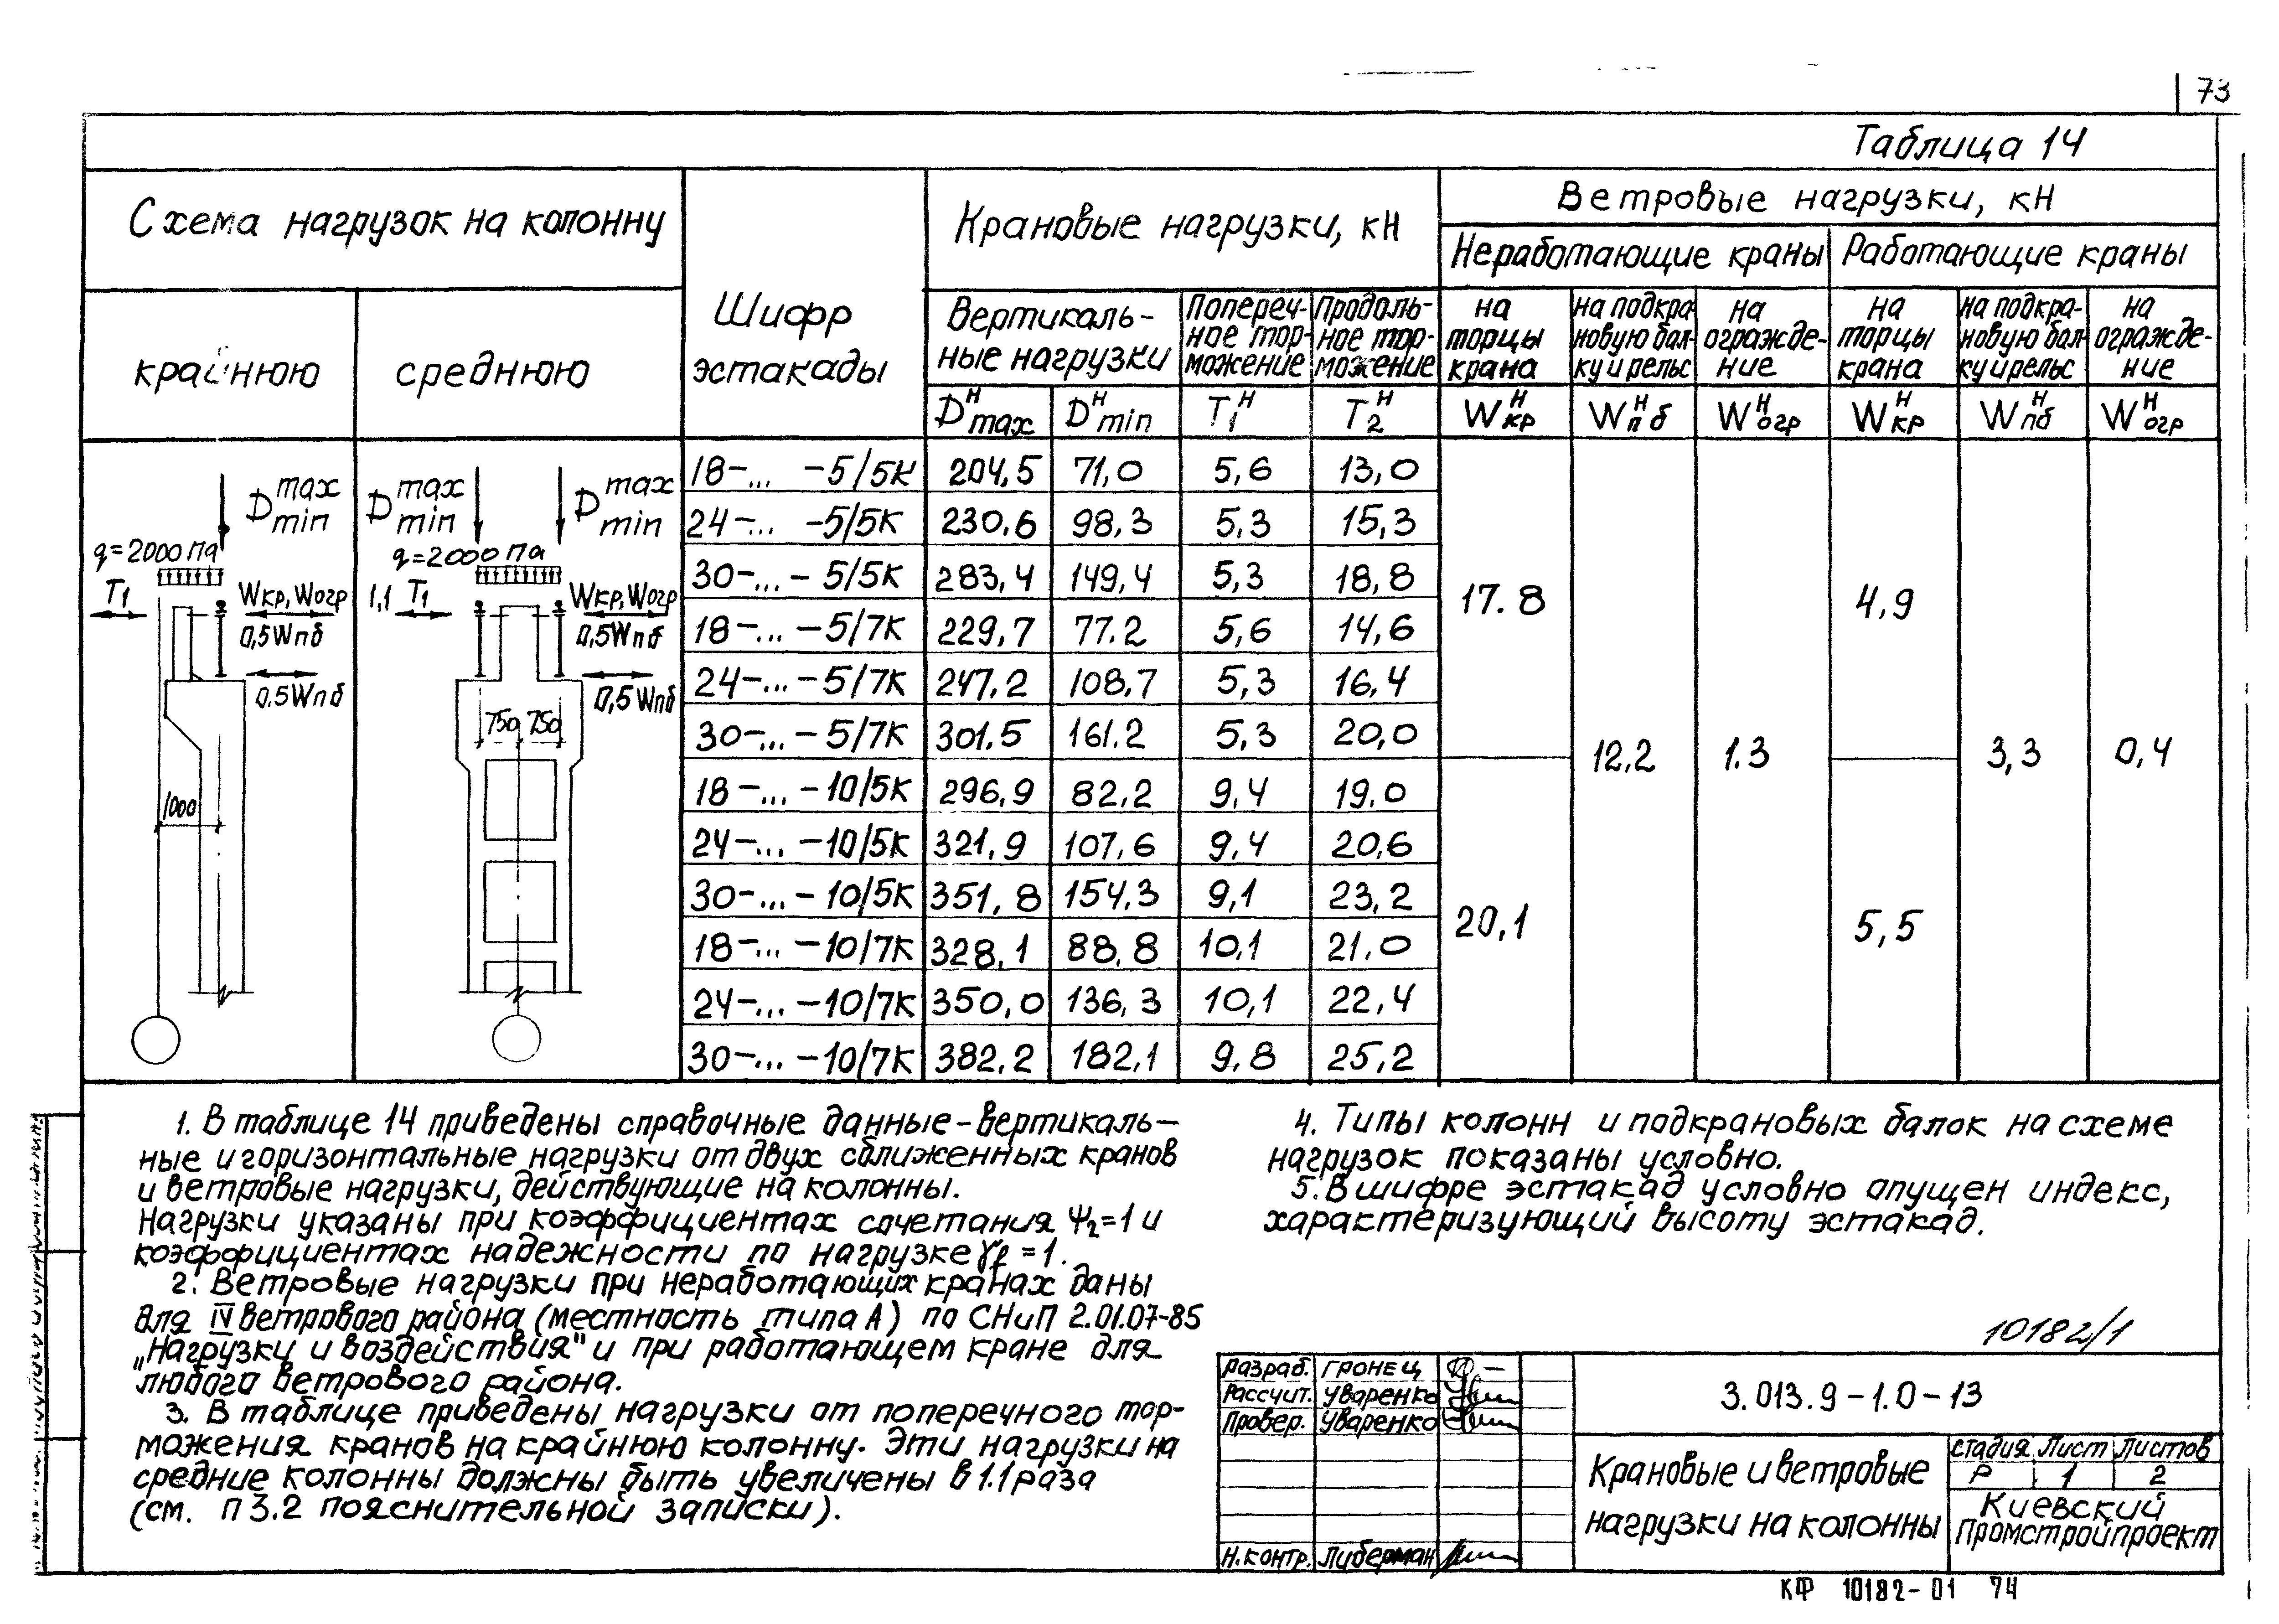 73
Таблица 14
Схема нагрузок на колонну
крайнюю
среднюю
Шифр
эстакады
Крановые нагрузки, кН
Вертикаль-
ные нагрузки
Попереч-
ное тор-
можение
Продоль-
ное тор-
можение
Ветровые нагрузки, кН
Неработающие краны
Работающие краны
на
торцы
крана
на подкра
новую бал-
ку и рельс
на
огражде-
ние
на
торцы
крана
на подкра-
новую бал-
ку и рельс
на
огражде-
ние
Dᴴmax
Dᴴmin
T₁ᴴ
T₂ᴴ
Wᴴкр
Wᴴпб
Wᴴогр
Wᴴкр
Wᴴпб
Wᴴогр
D max min
q=2000 Па
T₁
Wкр, Wогр
0,5Wпб
0.5Wпб
1000
D max min
D max min
q=2000 Па
1,1 T₁
Wкр, Wогр
0,5Wпб
0,5Wпб
750 750
18-... -5/5К 204,5 71,0 5,6 13,0
24-... -5/5К 230.6 98,3 5,3 15,3
30-... -5/5К 283,4 149,4 5,3 18,8
18-... -5/7К 229,7 77.2 5,6 14,6
24-... -5/7К 247.2 108,7 5,3 16,4
30-... -5/7К 301.5 161.2 5,3 20,0
18-... -10/5К 296,9 82,2 9,4 19,0
24-... -10/5К 321,9 107,6 9,4 20,6
30-... -10/5К 351,8 154,3 9,1 23,2
18-... -10/7К 328,1 88,8 10,1 21,0
24-... -10/7К 350,0 136,3 10,1 22,4
30-... -10/7К 382.2 182,1 9,8 25,2
17.8
20,1
12,2
1.3
4,9
5,5
3,3
0,4
1. В таблице 14 приведены справочные данные - вертикаль-
ные и горизонтальные нагрузки от двух сближенных кранов
и ветровые нагрузки, действующие на колонны.
Нагрузки указаны при коэффициентах сочетания Ψ₂=1 и
коэффициентах надежности по нагрузке γf=1.
2. Ветровые нагрузки при неработающих кранах даны
для IV ветрового района (местность типа А) по СНиП 2.01.07-85
„Нагрузки и воздействия" и при работающем кране для
любого ветрового района.
3. В таблице приведены нагрузки от поперечного тор-
можения кранов на крайнюю колонну. Эти нагрузки на
средние колонны должны быть увеличены в 1.1 раза
(см. п 3.2 пояснительной записки).
4. Типы колонн и подкрановых балок на схеме
нагрузок показаны условно.
5. В шифре эстакад условно опущен индекс,
характеризующий высоту эстакад.
10182/1
Разраб. Гронец
Рассчит. Уваренко
Провер. Уваренко
Н.контр. Либерман
3.013.9-1.0-13
Крановые и ветровые
нагрузки на колонны
стадия Лист Листов
Р 1 2
Киевский
Промстройпроект
КФ 10182-01 74